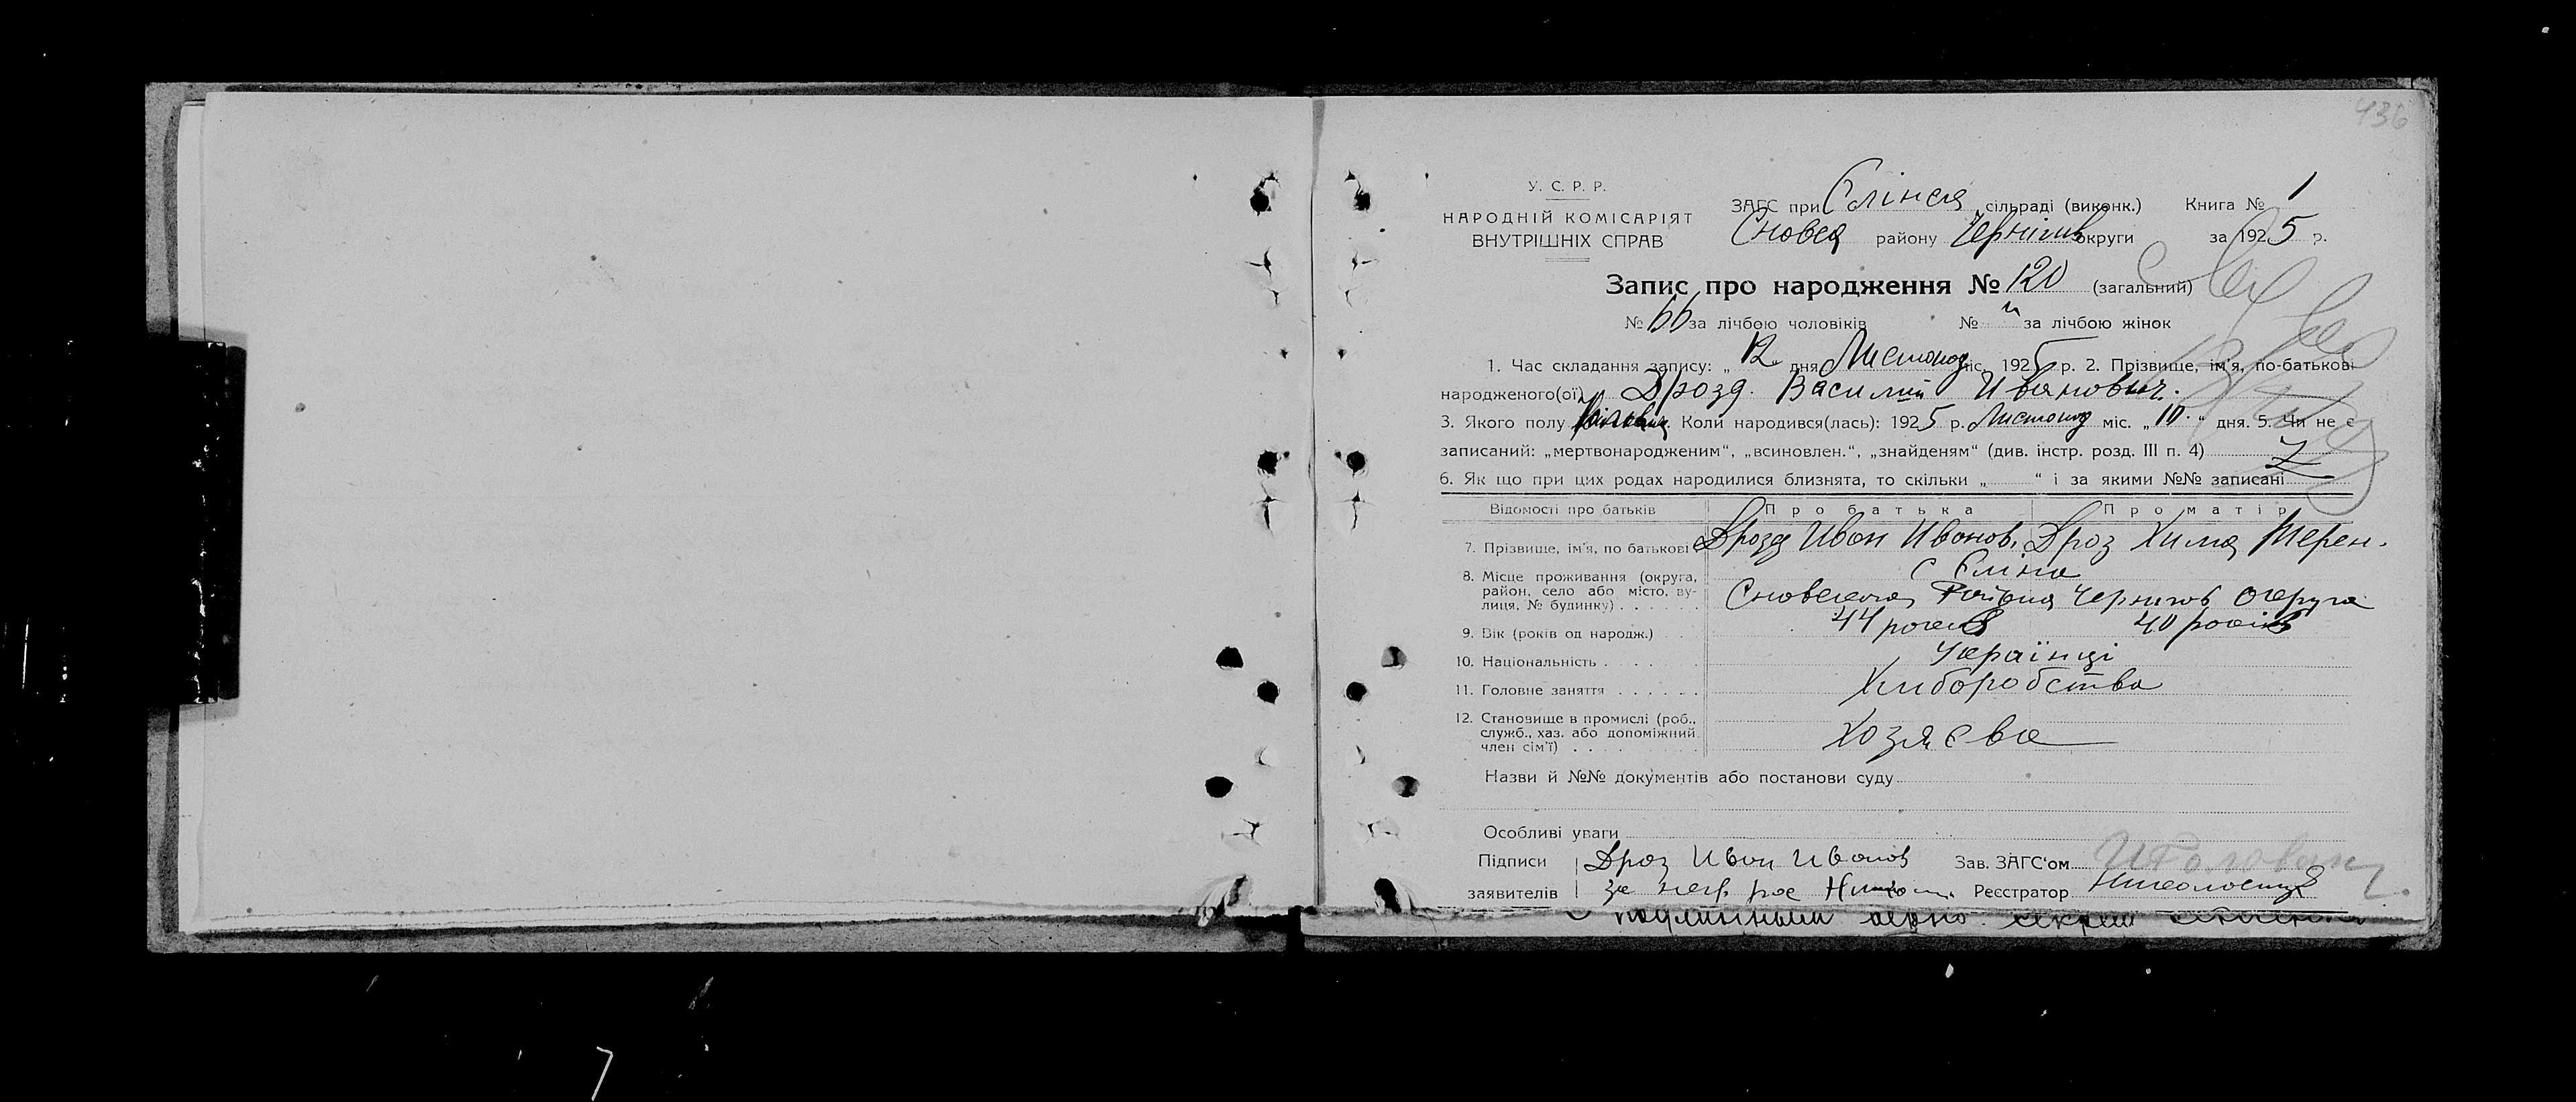 436
У. С. Р. Р.
НАРОДНІЙ КОМІСАРІЯТ
ВНУТРІШНІХ СПРАВ
ЗАГС при Єлінск сільраді (виконк.) Книга № 1
Сновск району Чернігів округи за 1925 р.
Запис про народження № 120 (загальний)
№ 66 за лічбою чоловіків № " за лічбою жінок
1. Час складання запису: „ 12 дня Листопад міс. 1925 р. 2. Прізвище, ім'я, по-батькові
народженого(ої) Дрозд Василий Иванович.
3. Якого полу Коли народився(лась): 1925 р. Листопад міс. „ 10 " дня. 5. Чи не є
записаний: „мертвонародженим“, „всиновлен.“, „знайденям“ (див. інстр. розд. III п. 4) Z
6. Як що при цих родах народилися близнята, то скільки „ “ і за якими №№ записані
Відомості про батьків Про батька Про матір
7. Прізвище, ім'я, по батькові Дрозд Иван Иванов. Дроз Хима Терен.
8. Місце проживання (округа, район, село або місто, вулиця, № будинку) с Єліна
Сновского Района Чернигов Округа
9. Вік (років од народж.) 44 років 40 років
10. Національність Українці
11. Головне заняття Хліборобства
12. Становище в промислі (роб., служб., хаз. або допоміжний член сім'ї) Хозяєва
Назви й №№ документів або постанови суду
Особливі уваги
Підписи Дроз Иван Иванов Зав. ЗАГС'ом
заявителів за негр. рос Реєстратор